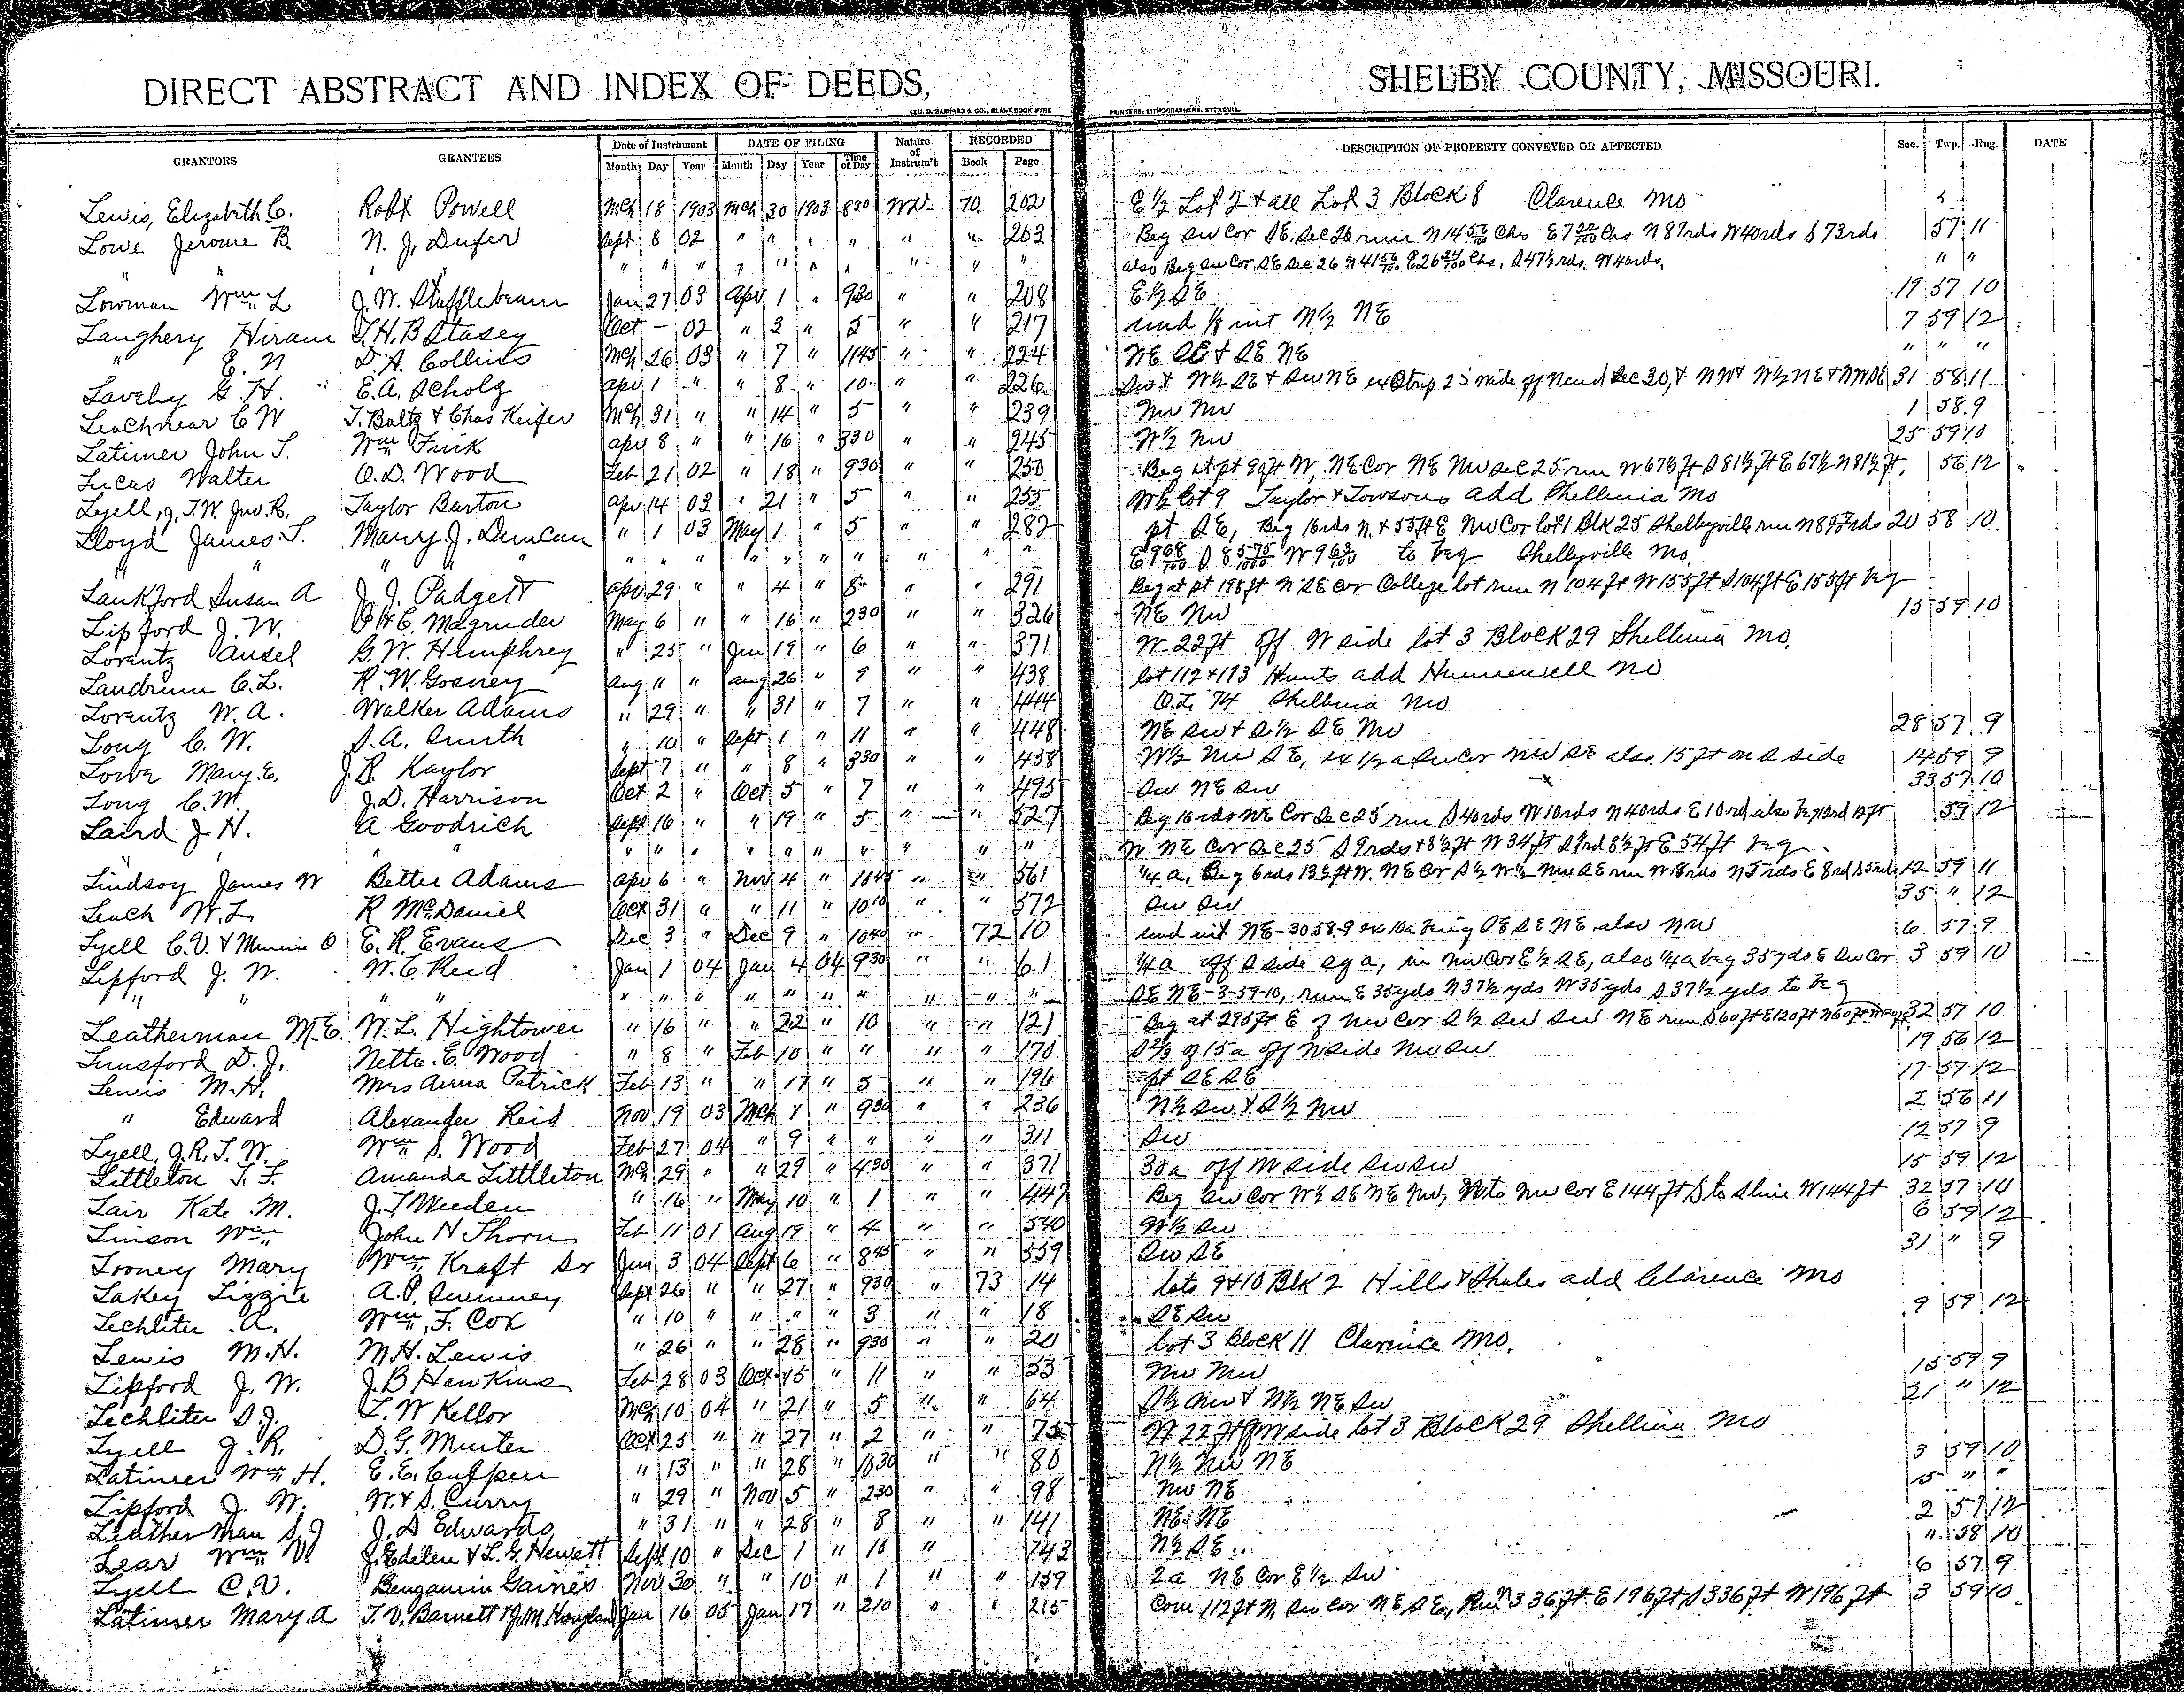 DIRECT ABSTRACT AND INDEX OF DEEDS, SHELBY COUNTY, MISSOURI.
GEO. D. BARNARD & CO., BLANK BOOK MFRS. PRINTERS, LITHOGRAPHERS, ST. LOUIS.
GRANTORS GRANTEES Date of Instrument DATE OF FILING Nature of Instrum't RECORDED DESCRIPTION OF PROPERTY CONVEYED OR AFFECTED Sec. Twp. Rng. DATE
Month Day Year Month Day Year Time of Day Book Page
Lewis, Elizabeth C. Robt Powell Mch 18 1903 Mch 30 1903 830 WD 70 202 E½ Lot 2 & all Lot 3 Block 8 Clarence Mo
Lowe Jerome B. N. J. Dufer Sept 8 02 " " " " " " 203 Beg SW Cor SE, Sec 26 run N 14 56/100 Chs E 7 22/100 Chs N 87rds W 40rds S 73rds 57 11
" " " " " " " " " " " " " also Beg SW Cor SE Sec 26 N 41 56/100 E 26 24/100 Chs, S 47½ rds, W 40rds, " "
Lowman Wm L J. W. Stufflebeam Jan 27 03 Apr 1 " 930 " " 208 E½ SE 19 57 10
Laughery Hiram T. H. B Stasey Oct – 02 " 3 " 5 " " 217 und ⅛ int N½ NE 7 59 12
" E. N D. A. Collins Mch 26 03 " 7 " 1145 " " 224 NE SE & SE NE " " "
Lavely G. H. E. A. Scholz Apr 1 " " 8 " 10 " " 226 SW & W½ SE & SW NE ex Strip 25 wide off N end Sec 30, & NW & W½ NE & NW SE 31 58 11
Leachnear C W T. Baltz & Chas Keifer Mch 31 " " 14 " 5 " " 239 NW NW 1 58 9
Latimer John T. Wm Fink Apr 8 " " 16 " 330 " " 245 W½ NW 25 59 10
Lucas Walter O. D. Wood Feb 21 02 " 18 " 930 " " 250 Beg at pt 90ft W, NE Cor NE NW Sec 25 run W 67½ ft S 81½ ft E 67½ N 81½ ft, 56 12
Lyell, J. T. W. Jno. R. Taylor Barton Apr 14 03 " 21 " 5 " " 255 W½ lot 9 Taylor & Towsons add Shelbina Mo
Lloyd James T. Maury J. Duncan " 1 03 May 1 " 5 " " 282 pt SE, Beg 16rds N. & 55ft E NW Cor lot 1 Blk 25 Shelbyville run N 8 rds 20 58 10
" " " " " " " " " " " " " E 9 68/100 S 8 575/1000 W 9 63/100 to beg Shelbyville Mo.
Lankford Susan A J. J. Padgett Apr 29 " " 4 " 8 " " 291 Beg at pt 198ft N SE Cor College lot run N 104ft W 155ft S 104ft E 155ft beg
Lipford J. W. B H C. Magruder May 6 " " 16 " 230 " " 326 NE NW 15 59 10
Lorentz Ansel G. W. Humphrey " 25 " Jun 19 " 6 " " 371 W 22ft off W side lot 3 Block 29 Shelbina Mo.
Landrum C. L. R. W. Gosney Aug 11 " Aug 26 " 9 " " 438 lot 112 & 113 Hunts add Hunnewell Mo
Lorentz W. A. Walker Adams " 29 " " 31 " 7 " " 444 O.L. 74 Shelbina Mo
Long C. W. S. A. Smith " 10 " Sept 1 " 11 " " 448 NE SW & S½ SE NW 28 57 9
Lowe Mary E. J. R. Kaylor Sept 7 " " 8 " 330 " " 458 W½ NW SE, ex ½ a SW Cor NW SE also 15 ft on S side 14 59 9
Long C. W. J. D. Harrison Oct 2 " Oct 5 " 7 " " 495 SW NE SW 33 57 10
Laird J. H. A Goodrich Sept 16 " " 19 " 5 " " 527 Beg 16rds NE Cor Sec 25 run S 40rds W 10rds N 40rds E 10rd also beg 13rd 12ft 59 12
" " " " " " " " " " " W NE Cor Sec 25 S 9rds & 8½ ft W 34ft S 9rd 8½ ft E 54ft beg
Lindsay James W Bettie Adams Apr 6 " Nov 4 " 1045 " " 561 ¼ a, Beg 6rds 13½ ft W. NE Cor S½ W½ NW SE run W 8rds N 5rds E 8rd S 5rds 12 59 11
Leach W. L. R McDaniel Oct 31 " " 11 " 1010 " " 572 SW SW 35 " 12
Lyell C. V. & Minnie O E. R. Evans Dec 3 " Dec 9 " 1040 " 72 10 und int NE-30.58.9 ex 10a being SE SE NE also NW 6 57 9
Lipford J. W. W. C. Reid Jan 1 04 Jan 4 04 930 " " 61 ¼ a off S side sq a, in NW Cor E½ SE, also ¼ a beg 35yds E SW Cor 3 59 10
" " " " " " " " " " " " " SE NE-3-59-10, run E 35yds N 37½ yds W 35yds S 37½ yds to beg
Leatherman M. E. W. L. Hightower " 16 " " 22 " 10 " " 121 Beg at 295ft E of NW Cor S½ SW SW NE run S 60ft E 120ft N 60ft 32 57 10
Lunsford D. J. Nettie E. Wood " 8 " Feb 10 " " " " 170 S⅔ of 15a off N side NW SW 19 56 12
Lewis M. H. Mrs Anna Patrick Feb 13 " " 17 " 5 " " 196 pt SE SE 17 57 12
" Edward Alexander Reid Nov 19 03 Mch 1 " 930 " " 236 N½ SW & S½ NW 2 56 11
Lyell, J. R. T. W. Wm S. Wood Feb 27 04 " 9 " " " " 311 SW 12 57 9
Littleton T. F. Amanda Littleton Mch 29 " " 29 " 430 " " 371 38a off N side SW SW 15 59 12
Lair Kate M. J. T Weeden " 16 " May 10 " 1 " " 447 Beg SW Cor W½ SE NE NW, N to NW Cor E 144ft S to S line W 144ft 32 57 10
Linson Wm John N Thorn Feb 11 01 Aug 19 " 4 " " 540 W½ SW 6 59 12
Looney Mary Wm Kraft Sr Jun 3 04 Sept 6 " 845 " " 559 SW SE 31 " 9
Lakey Lizzie A. P. Swinney Sept 26 " " 27 " 930 " 73 14 lots 9 & 10 Blk 2 Hills & Shales add Clarence Mo
Lechliter A. Wm. F. Cox " 10 " " " " 3 " " 18 SE SW 9 59 12
Lewis M. H. M. H. Lewis " 26 " " 28 " 930 " " 20 lot 3 Block 11 Clarence Mo.
Lipford J. W. J. B Hawkins Feb 28 03 Oct 15 " 11 " " 53 NW NW 15 59 9
Lechliter S. J. L. W Kellor Mch 10 04 " 21 " 5 " " 64 S½ NW & N½ NE SW 21 " 12
Lyell J. R. D. G. Minter Oct 25 " " 27 " 2 " 75 W 22 ft off W side lot 3 Block 29 Shelbina Mo
Latimer Wm H. E. E. Culppen " 13 " " 28 " 1030 " " 80 N½ NW NE 3 59 10
Lipford J. W. W. & S. Curry " 29 " Nov 5 " 230 " " 98 NW NE 15 " "
Leatherman S. J J. D Edwards " 31 " " 28 " 8 " " 141 NE NE 2 57 12
Lear Wm V. J. Edelen & L. G. Hewett Sept 10 " Dec 1 " 10 " 143 N½ SE " 58 10
Lyell C. V. Bengamin Gaines Nov 30 " " 10 " 1 " " 159 2a NE Cor E½ SW 6 57 9
Latimer Mary A T. V. Barnett & J. M Hougland Jan 16 05 Jan 17 " 210 " " 215 Com 112ft N, SW Cor NE SE, Run N 336ft E 196ft S 336ft W 196ft 3 59 10